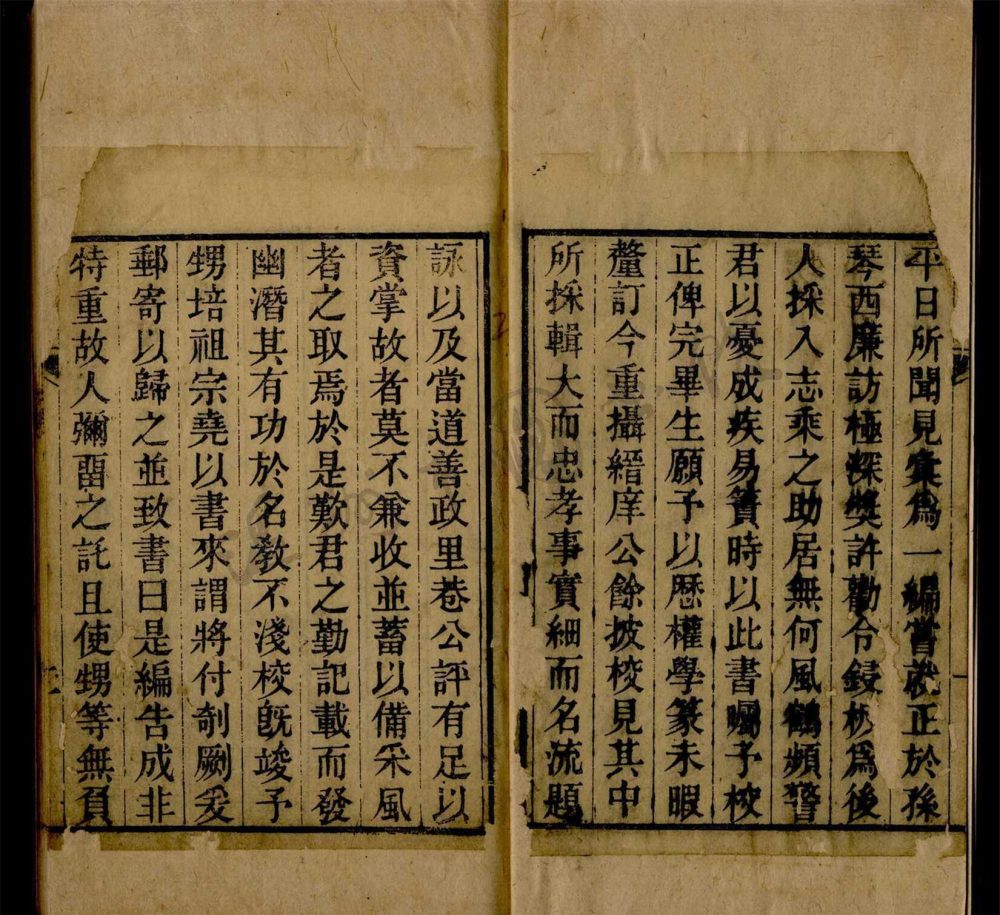 平日所聞見彙爲一編嘗就正於孫
琴西廉訪極深獎許勸令鋟板爲後
人採入志乘之助居無何風鶴頻警
君以憂成疾易簀時以此書囑予校
正俾完畢生願予以歷權學篆未暇
釐訂今重攝縉庠公餘披校見其中
所採輯大而忠孝事實細而名流題
詠以及當道善政里巷公評有足以
資掌故者莫不兼收並蓄以備采風
者之取焉於是歎君之勤記載而發
幽潛其有功於名教不淺校旣竣予
甥培祖宗堯以書來謂將付剞劂爰
郵寄以歸之並致書曰是編告成非
特重故人彌畱之託且使甥等無負